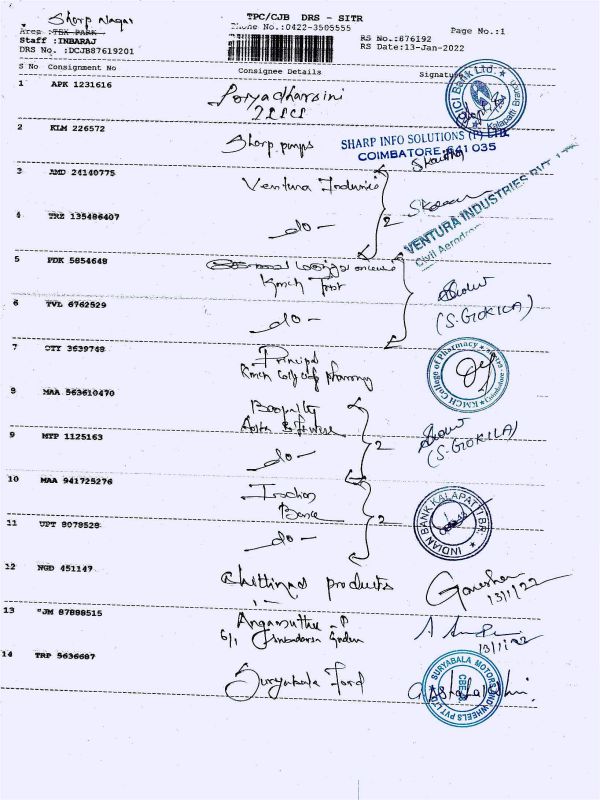 Sharp Nagar
TPC/CJB DRS - SITR
Area :TSX PARK
Phone No.:0422-3505555
Page No.:1
Staff :INBARAJ
RS No.:876192
DRS No. :DCJB87619201
RS Date:13-Jan-2022
S No Consignment No Consignee Details Signature
1 APK 1231616
ICICI Bank Ltd. Kalapatti Branch
2 KLM 226572 Sharp pumps
SHARP INFO SOLUTIONS (P) LTD.
COIMBATORE-641 035
3 AMD 24140775 Ventura Industries
VENTURA INDUSTRIES PVT. LTD
Civil Aerodrome
4 TRZ 135486407 -do- 2
5 PDK 5854648
KMCH Trust
6 TVL 6762529 -do- (S.GOKILA)
7 OTY 3639748 Principal
KMCH College of pharmacy
KMCH College of Pharmacy Coimbatore
8 MAA 563610470
9 MTP 1125163 -do- 2 (S.GOKILA)
10 MAA 941725276 Indian
Bank
INDIAN BANK KALAPATTI BR.
11 UPT 8078528 -do- 2
12 NGD 451147 Chettinad products Ganeshan
13/1/22
13 JM 87888515 Angamuthu .P
6/1
13/1/22
14 TRP 5636687 Suryabala Ford
SURYABALA MOTORS AND WHEELS PVT LTD CBE